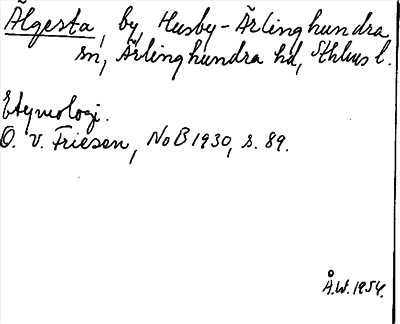 Älgesta, by, Husby-Ärlinghundra
sn, Ärlinghundra hd, Sthlms l.
Etymologi.
O. v. Friesen, NoB 1930, s. 89.
Å.W. 1954.